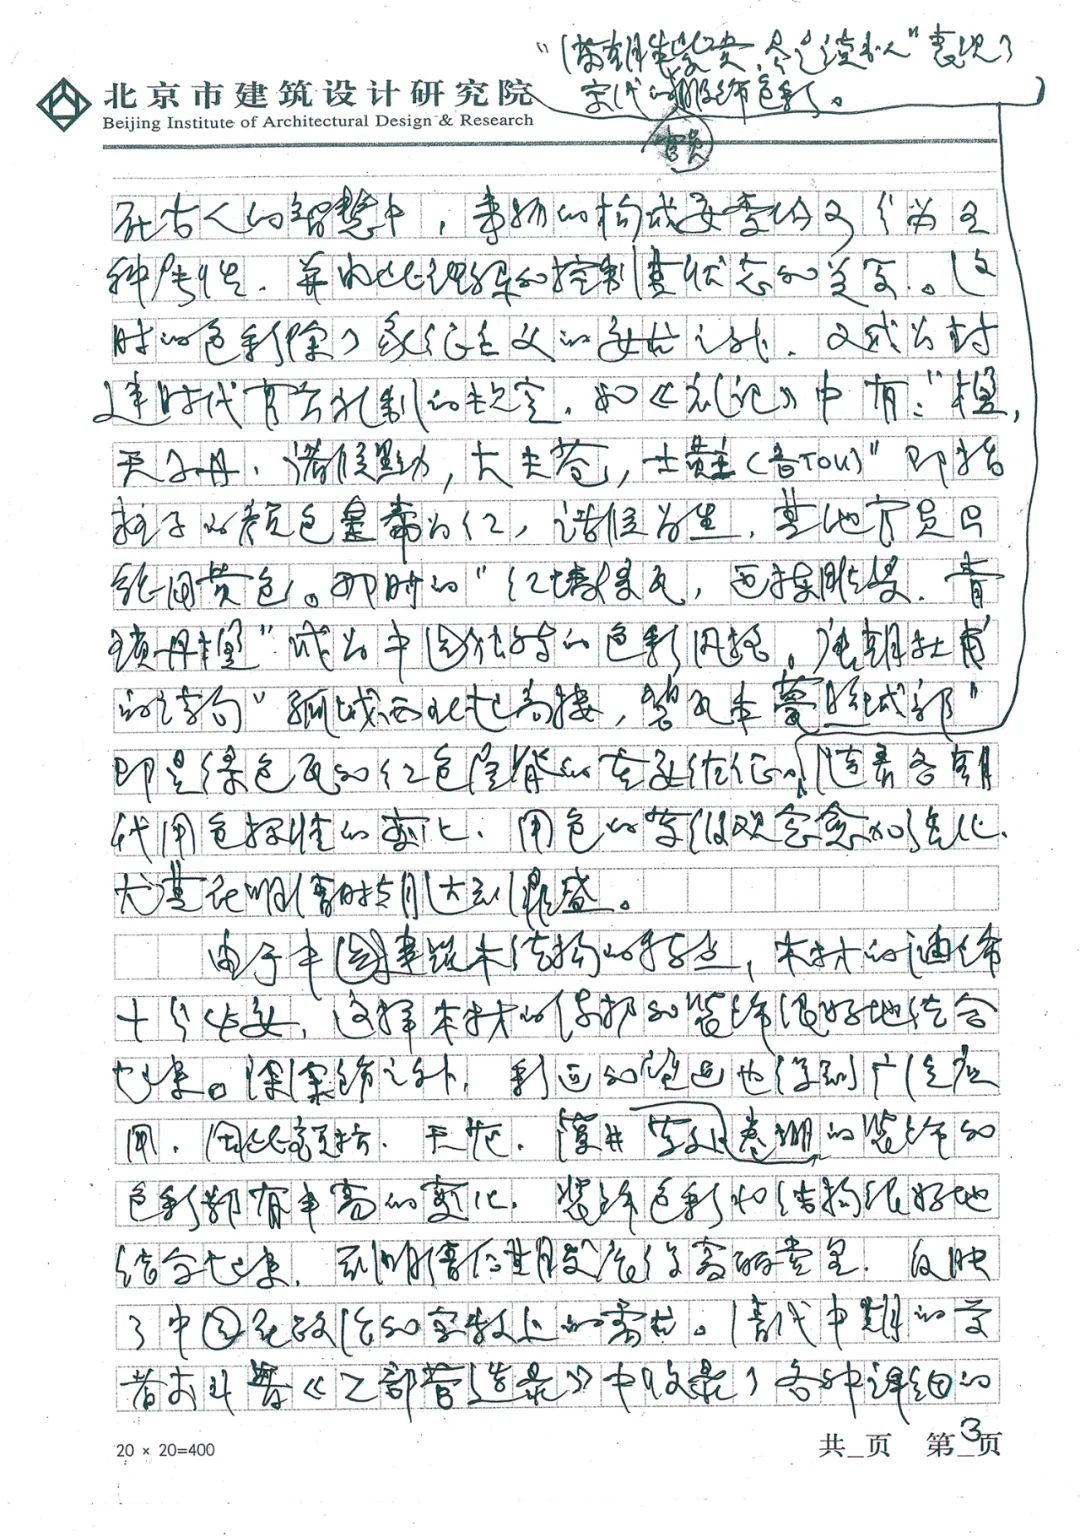 "满朝朱紫贵,尽是读书人"表现了
宋代的官员服饰色彩。
北京市建筑设计研究院
Beijing Institute of Architectural Design & Research
在古人的智慧中,事物的构成要素仍可分为五
种属性,并由此理解和控制其状态的关系。这
时的色彩除了象征主义的要求之外,又成为封
建时代有关礼制的规定,如《礼记》中有:"楹,
天子丹,诸侯黝,大夫苍,士黈(音TOU)"即指
柱子的颜色皇帝为红,诸侯为黑,其他官员只
能用黄色。那时的"红墙绿瓦,画栋雕梁,青
琐丹楹"成为中国独特的色彩风格。唐朝杜甫
的诗句"孤城西北起高楼,碧瓦朱甍照城郭"
即是绿色瓦和红色屋脊的直接佐证。随着各朝
代用色探性的变化,用色的等级观念愈加强化,
尤其在明清时期达到鼎盛。
由于中国建筑木结构的特点,木材的油饰
十分必要,这样木材的保护和装饰很好地结合
起来。除漆饰之外,彩画的绘画也得到广泛应
用,因此梁枋、天花、藻井 卷棚的装饰的
色彩都有丰富的变化,装饰色彩和结构很好地
结合起来,到明清住其发展得富丽堂皇,反映
了中国在政治和宗教上的需求。清代中期的学
者李斗著《工部营造录》中收录了各种详细的
20 × 20=400
共_页 第3页